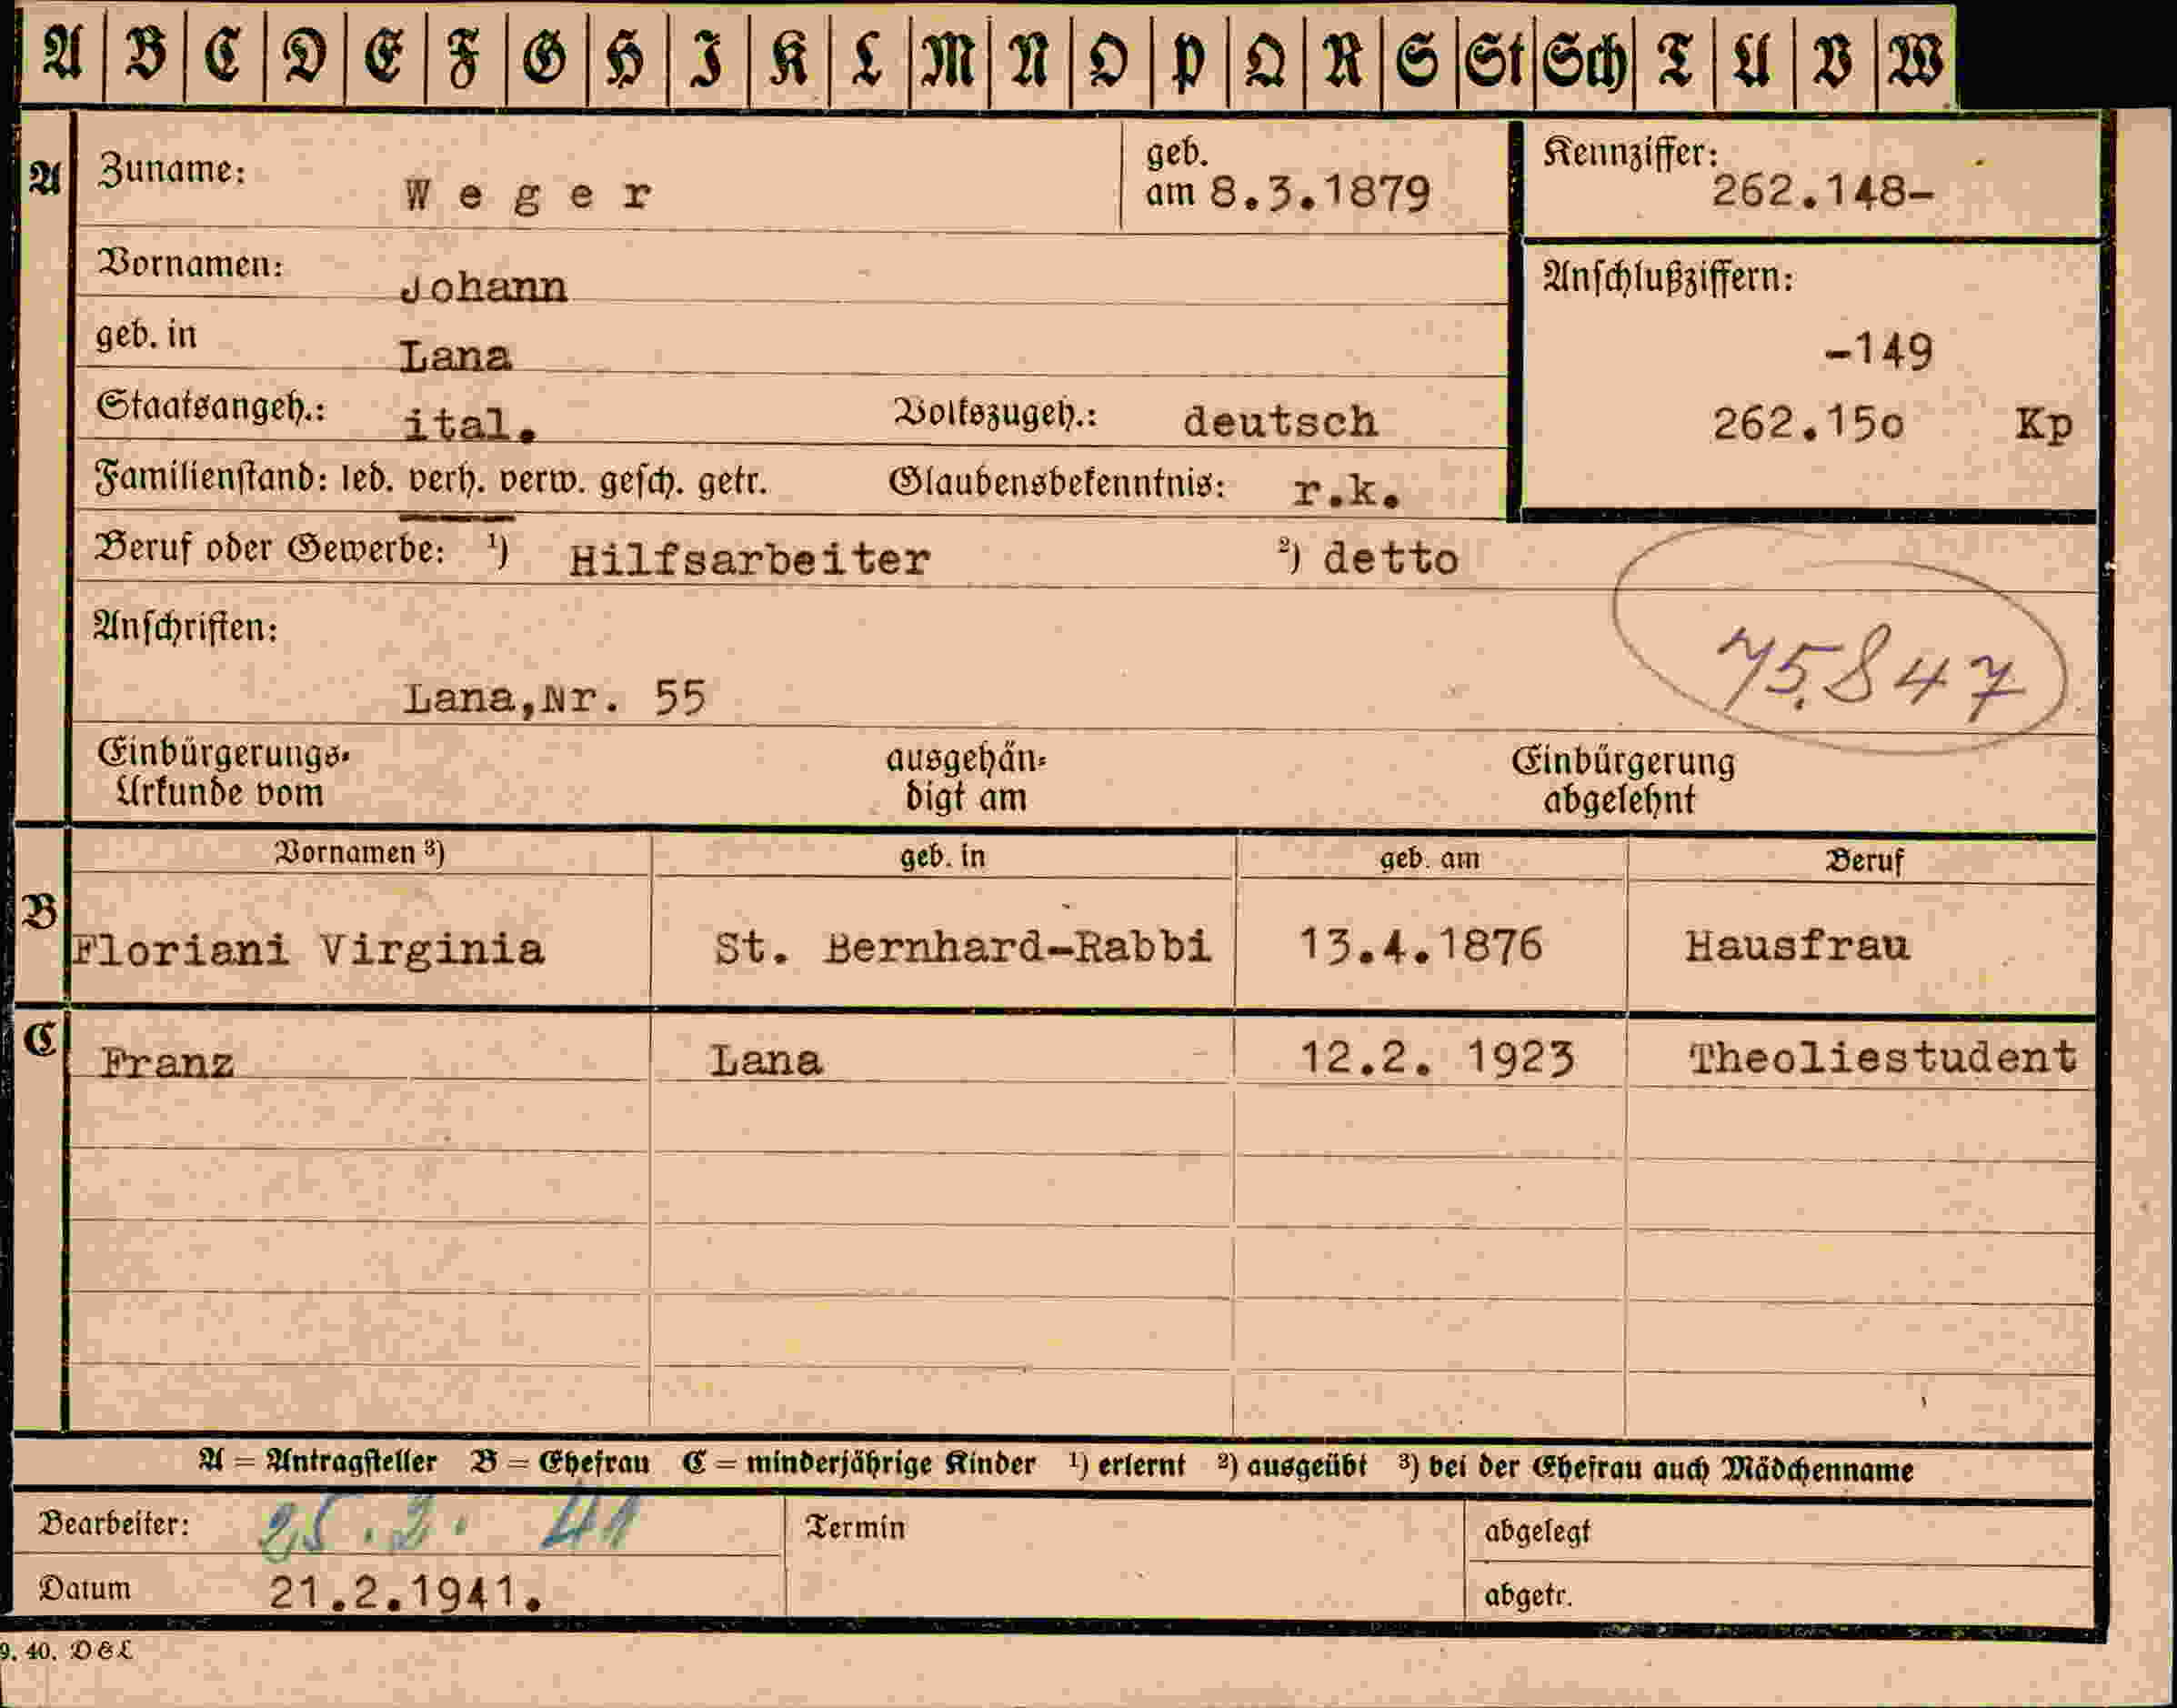 A B C D E F G H I K L M N O P Q R S St Sch T U V W
A Zuname: Weger geb. am 8.3.1879 Kennziffer: 262.148-
Vornamen: Johann Anschlußziffern:
geb. in Lana -149
Staatsangeh.: ital. Volkszugeh.: deutsch 262.15o Kp
Familienstand: led. verh. verw. gesch. getr. Glaubensbekenntnis: r.k.
Beruf oder Gewerbe: ¹) Hilfsarbeiter ²) detto
Anschriften: 75.847
Lana,Nr. 55
Einbürgerungs- ausgehän- Einbürgerung
Urkunde vom digt am abgelehnt
Vornamen ³) geb. in geb. am Beruf
B Floriani Virginia St. Bernhard-Rabbi 13.4.1876 Hausfrau
C Franz Lana 12.2. 1923 Theoliestudent
A = Antragsteller B = Ehefrau C = minderjährige Kinder ¹) erlernt ²) ausgeübt ³) bei der Ehefrau auch Mädchenname
Bearbeiter: 25.2. 41 Termin abgelegt
Datum 21.2.1941. abgetr.
9. 40. D&L